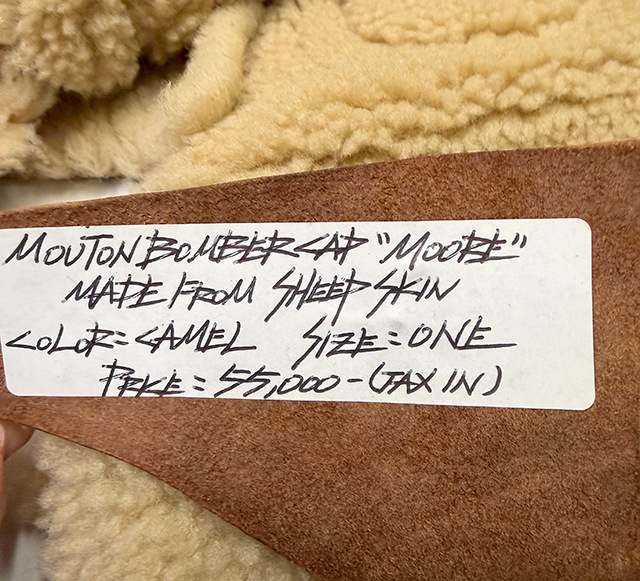 MOUTON BOMBER CAP "MOORE"
MADE FROM SHEEP SKIN
COLOR=CAMEL SIZE=ONE
PRICE=55,000-(TAX IN)